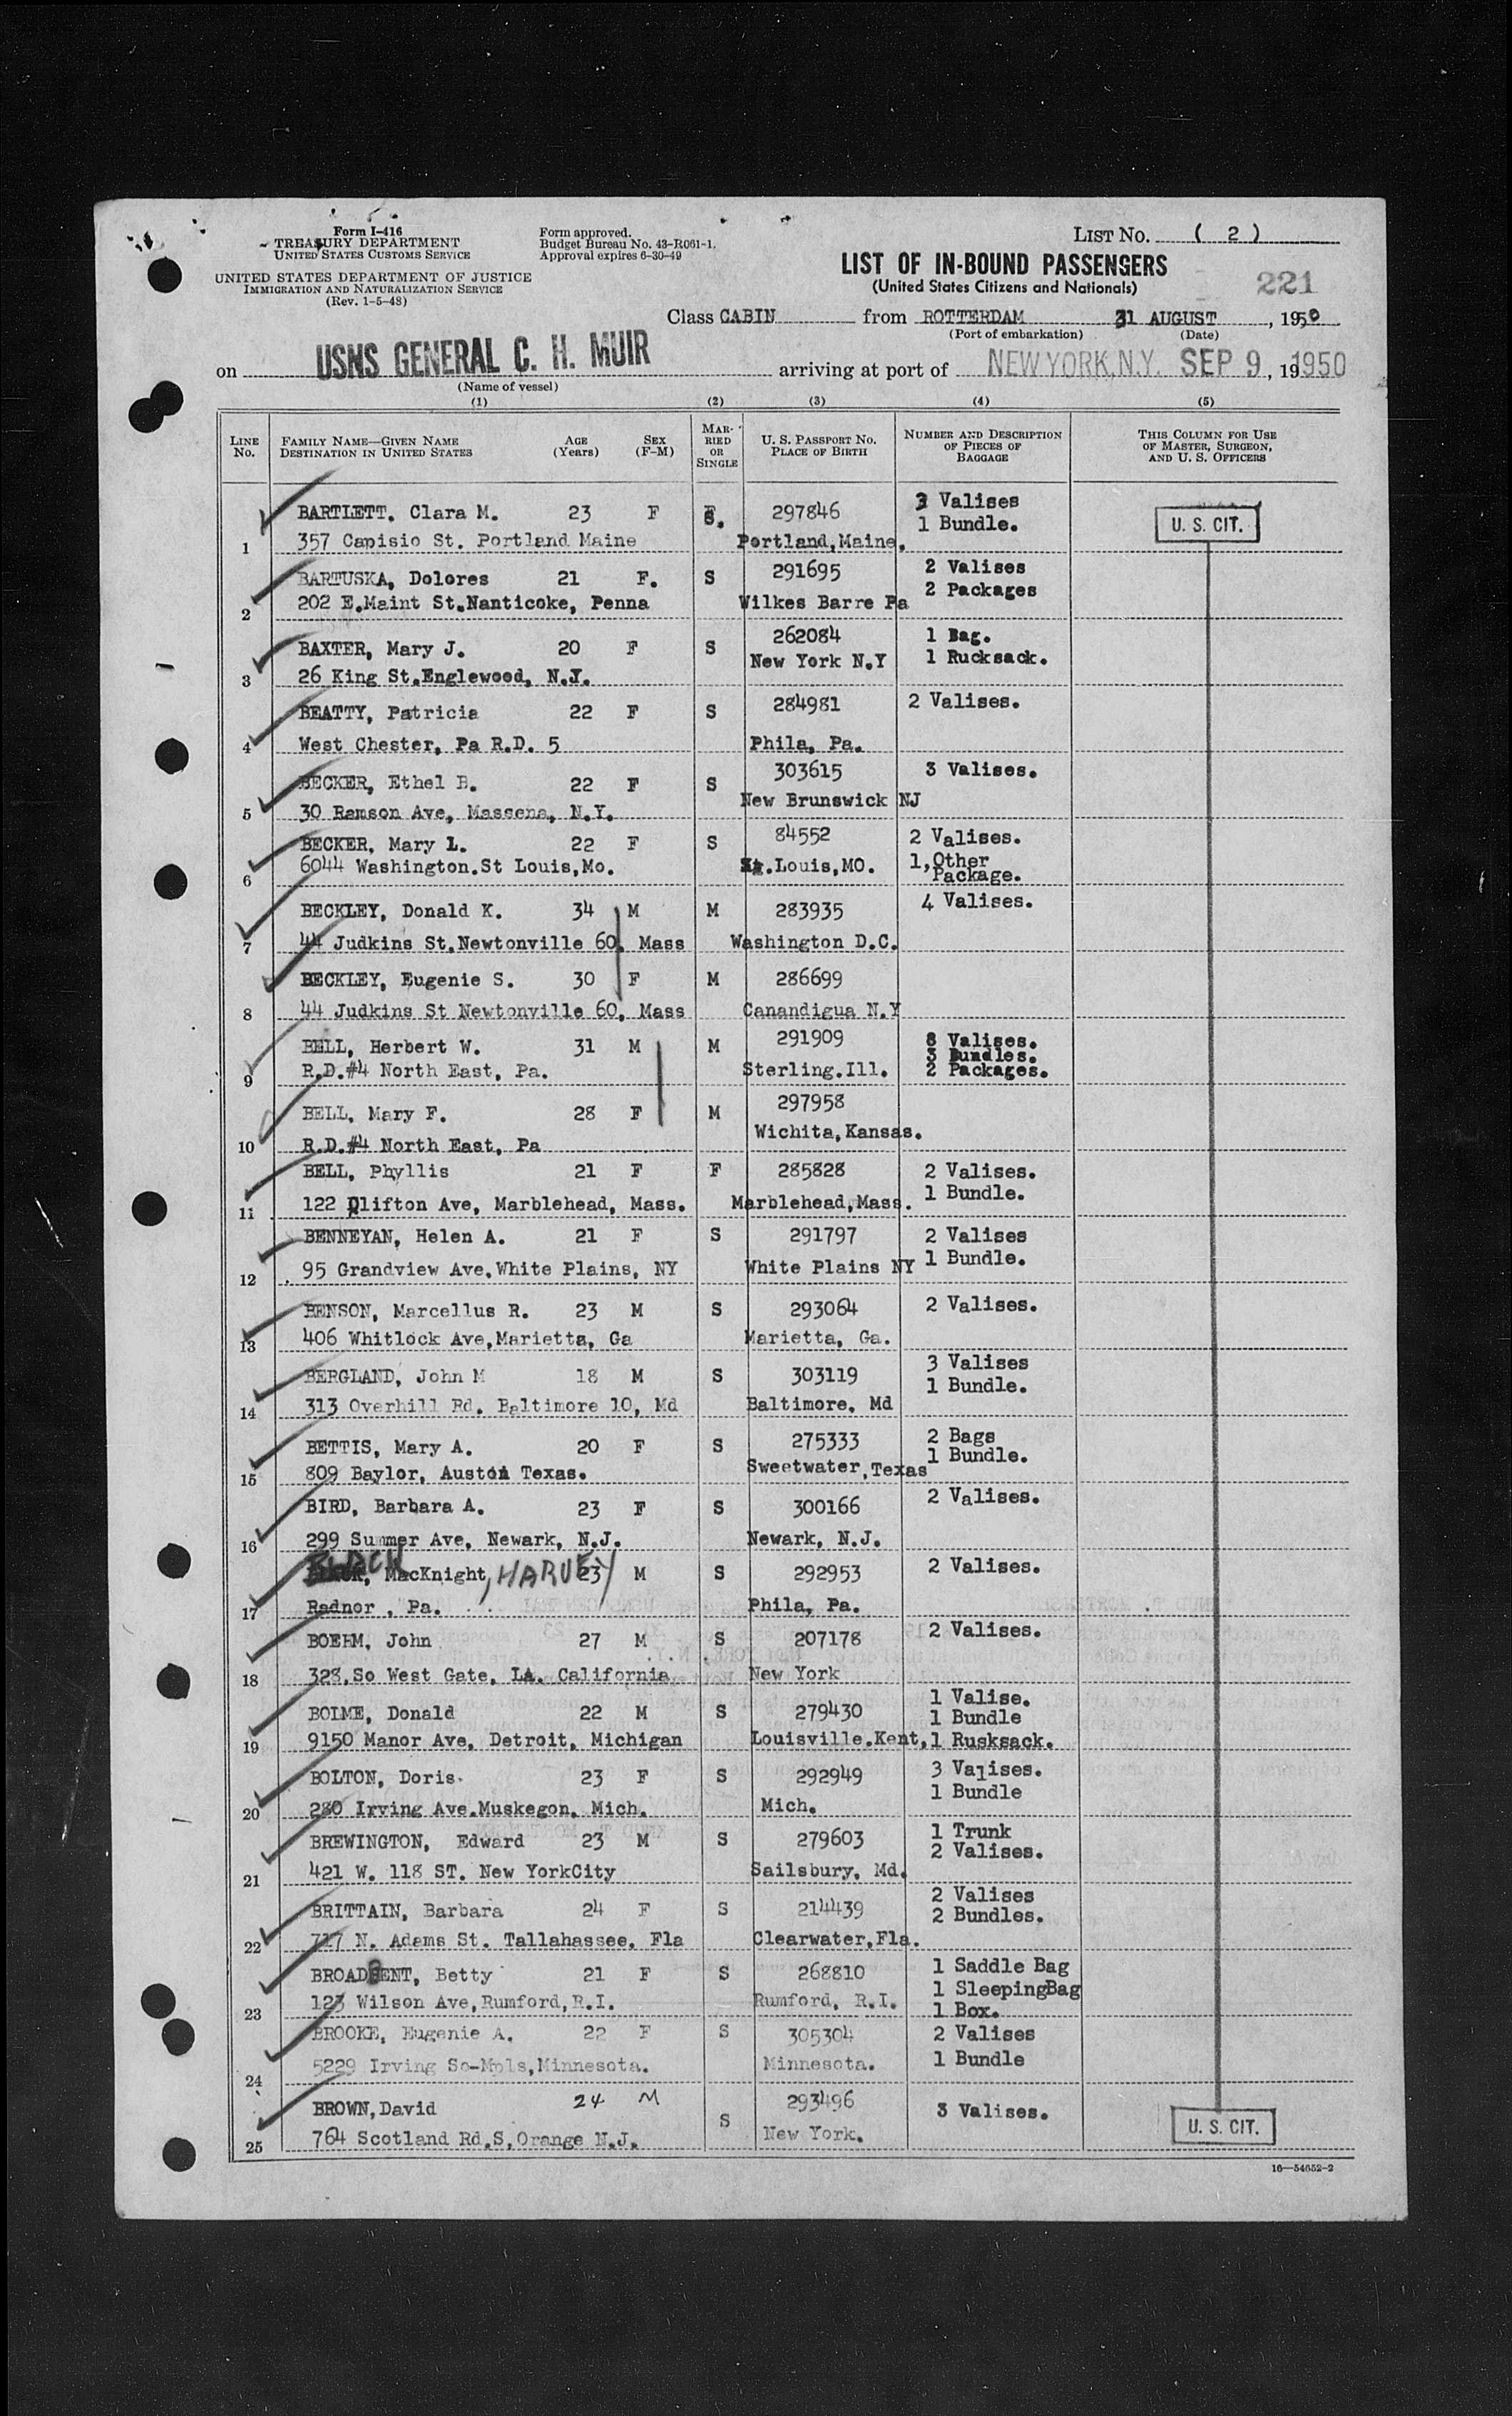 Form I-416
TREASURY DEPARTMENT
UNITED STATES CUSTOMS SERVICE
UNITED STATES DEPARTMENT OF JUSTICE
IMMIGRATION AND NATURALIZATION SERVICE
(Rev. 1-5-48)
Form approved.
Budget Bureau No. 43-R061-1.
Approval expires 6-30-49
LIST NO. ( 2 )
LIST OF IN-BOUND PASSENGERS
(United States Citizens and Nationals)
221
Class CABIN from ROTTERDAM 31 AUGUST, 1950
(Port of embarkation) (Date)
on USNS GENERAL C. H. MUIR arriving at port of NEW YORK, N.Y. SEP 9, 19 1950
(Name of vessel)
(1) (2) (3) (4) (5)
LINE No. FAMILY NAME—GIVEN NAME DESTINATION IN UNITED STATES AGE (Years) SEX (F-M) MARRIED OR SINGLE U. S. PASSPORT NO. PLACE OF BIRTH NUMBER AND DESCRIPTION OF PIECES OF BAGGAGE THIS COLUMN FOR USE OF MASTER, SURGEON, AND U. S. OFFICERS
BARTLETT, Clara M. 23 F S. 297846 3 Valises
1 Bundle. U. S. CIT.
1 357 Capisio St. Portland Maine Portland, Maine.
BARTUSKA, Dolores 21 F. S 291695 2 Valises
2 202 E.Maint St.Nanticoke, Penna Wilkes Barre Pa 2 Packages
BAXTER, Mary J. 20 F S 262084 1 Bag.
3 26 King St.Englewood, N.J. New York N.Y 1 Rucksack.
BEATTY, Patricia 22 F S 284981 2 Valises.
4 West Chester, Pa R.D. 5 Phila, Pa.
BECKER, Ethel B. 22 F S 303615 3 Valises.
5 30 Ramson Ave, Massena, N.Y. New Brunswick NJ
BECKER, Mary L. 22 F S 84552 2 Valises.
6 6044 Washington.St Louis,Mo. St.Louis,MO. 1,Other
Package.
BECKLEY, Donald K. 34 M M 283935 4 Valises.
7 44 Judkins St.Newtonville 60, Mass Washington D.C.
BECKLEY, Eugenie S. 30 F M 286699
8 44 Judkins St Newtonville 60, Mass Canandigua N.Y
BELL, Herbert W. 31 M M 291909 8 Valises.
3 Bundles.
9 R.D.#4 North East, Pa. Sterling.Ill. 2 Packages.
BELL, Mary F. 28 F M 297958
10 R.D.#4 North East, Pa Wichita,Kansas.
BELL, Phyllis 21 F F 285828 2 Valises.
11 122 Clifton Ave, Marblehead, Mass. Marblehead,Mass. 1 Bundle.
BENNEYAN, Helen A. 21 F S 291797 2 Valises
12 95 Grandview Ave,White Plains, NY White Plains NY 1 Bundle.
BENSON, Marcellus R. 23 M S 293064 2 Valises.
13 406 Whitlock Ave,Marietta, Ga Marietta, Ga.
BERGLAND, John M 18 M S 303119 3 Valises
14 313 Overhill Rd. Baltimore 10, Md Baltimore, Md 1 Bundle.
BETTIS, Mary A. 20 F S 275333 2 Bags
15 809 Baylor, Austin Texas. Sweetwater,Texas 1 Bundle.
BIRD, Barbara A. 23 F S 300166 2 Valises.
16 299 Summer Ave, Newark, N.J. Newark, N.J.
BLACK, MacKnight, HARVEY 23 M S 292953 2 Valises.
17 Radnor , Pa. Phila, Pa.
BOEHM, John 27 M S 207178 2 Valises.
18 328,So West Gate, LA. California New York
BOLME, Donald 22 M S 279430 1 Valise.
1 Bundle
19 9150 Manor Ave, Detroit, Michigan Louisville.Kent, 1 Rusksack.
BOLTON, Doris 23 F S 292949 3 Valises.
20 280 Irving Ave.Muskegon, Mich. Mich. 1 Bundle
BREWINGTON, Edward 23 M S 279603 1 Trunk
21 421 W. 118 ST. New YorkCity Sailsbury, Md. 2 Valises.
BRITTAIN, Barbara 24 F S 214439 2 Valises
2 Bundles.
22 717 N. Adams St. Tallahassee, Fla Clearwater,Fla.
BROADBENT, Betty 21 F S 268810 1 Saddle Bag
1 SleepingBag
23 123 Wilson Ave,Rumford,R.I. Rumford, R.I. 1 Box.
BROOKE, Eugenie A. 22 F S 305304 2 Valises
24 5229 Irving So-Mpls,Minnesota. Minnesota. 1 Bundle
BROWN,David 24 M S 293496 3 Valises.
25 764 Scotland Rd.S,Orange N.J. New York. U. S. CIT.
16—54652-2